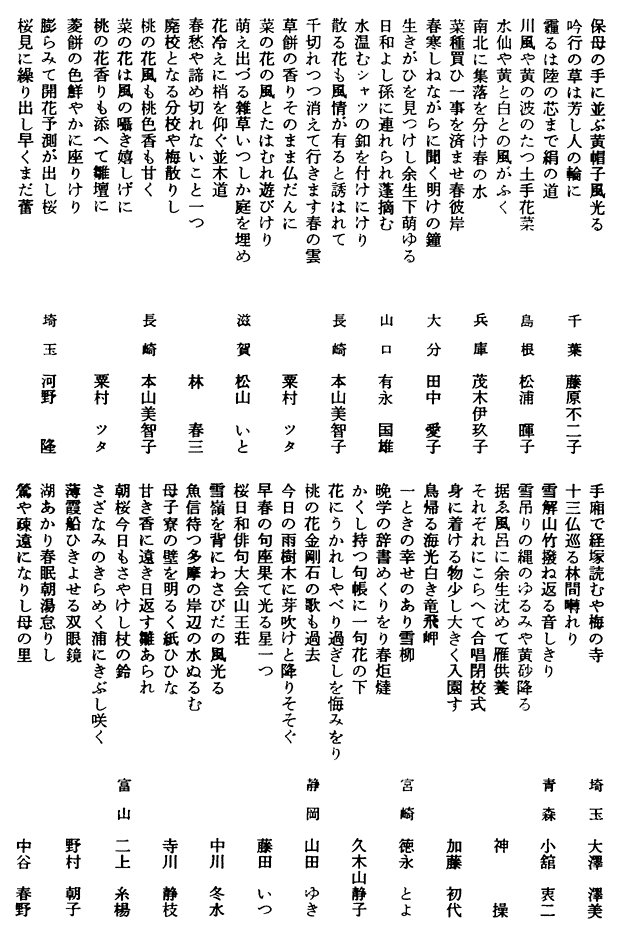 保母の手に並ぶ黄帽子風光る
吟行の草は芳し人の輪に
千葉 藤原不二子
靄るは陸の芯まで絹の道
川風や黄の波のたつ土手花菜
島根 松浦暉子
水仙や黄と白との風がふく
南北に集落を分け春の水
兵庫 茂木伊玖子
菜種買ひ一事を済ませ春彼岸
春寒しねながらに聞く明けの鐘
大分 田中愛子
生きがひを見つけし余生下萌ゆる
日和よし孫に連れられ蓬摘む
山口 有永国雄
水温むシャツの釦を付けにけり
散る花も風情が有ると誘はれて
長崎 本山美智子
千切れつつ消えて行きます春の雲
草餅の香りそのまま仏だんに
粟村ツタ
菜の花の風とたはむれ遊びけり
萌え出づる雑草いつしか庭を埋め
滋賀 松山いと
花冷えに梢を仰ぐ並木道
春愁や諦め切れないこと一つ
林春三
廃校となる分校や梅散りし
桃の花風も桃色香も甘く
長崎 本山美智子
菜の花は風の囁き嬉しげに
桃の花香りも添へて雛壇に
粟村ツタ
菱餅の色鮮やかに座りけり
膨らみて開花予測が出し桜
埼玉 河野隆
桜見に繰り出し早くまだ蕾
手廂で経塚読むや梅の寺
埼玉 大澤澤美
十三仏巡る林間囀れり
雪解山竹撥ね返る音しきり
青森 小舘衷二
雪吊りの縄のゆるみや黄砂降る
据ゑ風呂に余生沈めて雁供養
神操
それぞれにこらへて合唱閉校式
身に着ける物少し大きく入園す
加藤初代
鳥帰る海光白き竜飛岬
一ときの幸せのあり雪柳
宮崎 徳永とよ
晩学の辞書めくりをり春炬燵
かくし持つ句帳に一句花の下
久木山静子
花にうかれしやべり過ぎしを悔みをり
桃の花金剛石の歌も過去
静岡 山田ゆき
今日の雨樹木に芽吹けと降りそそぐ
早春の句座果て光る星一つ
藤田いつ
桜日和俳句大会山王荘
雪嶺を背にわさびだの風光る
中川冬水
魚信待つ多摩の岸辺の水ぬるむ
母子寮の壁を明るく紙ひひな
寺川静枝
甘き香に遠き日返す雛あられ
朝桜今日もさやけし杖の鈴
富山 二上糸楊
さざなみのきらめく浦にきぶし咲く
薄霞船ひきよせる双眼鏡
野村朝子
湖あかり春眠朝湯怠りし
鶯や疎遠になりし母の里
中谷春野